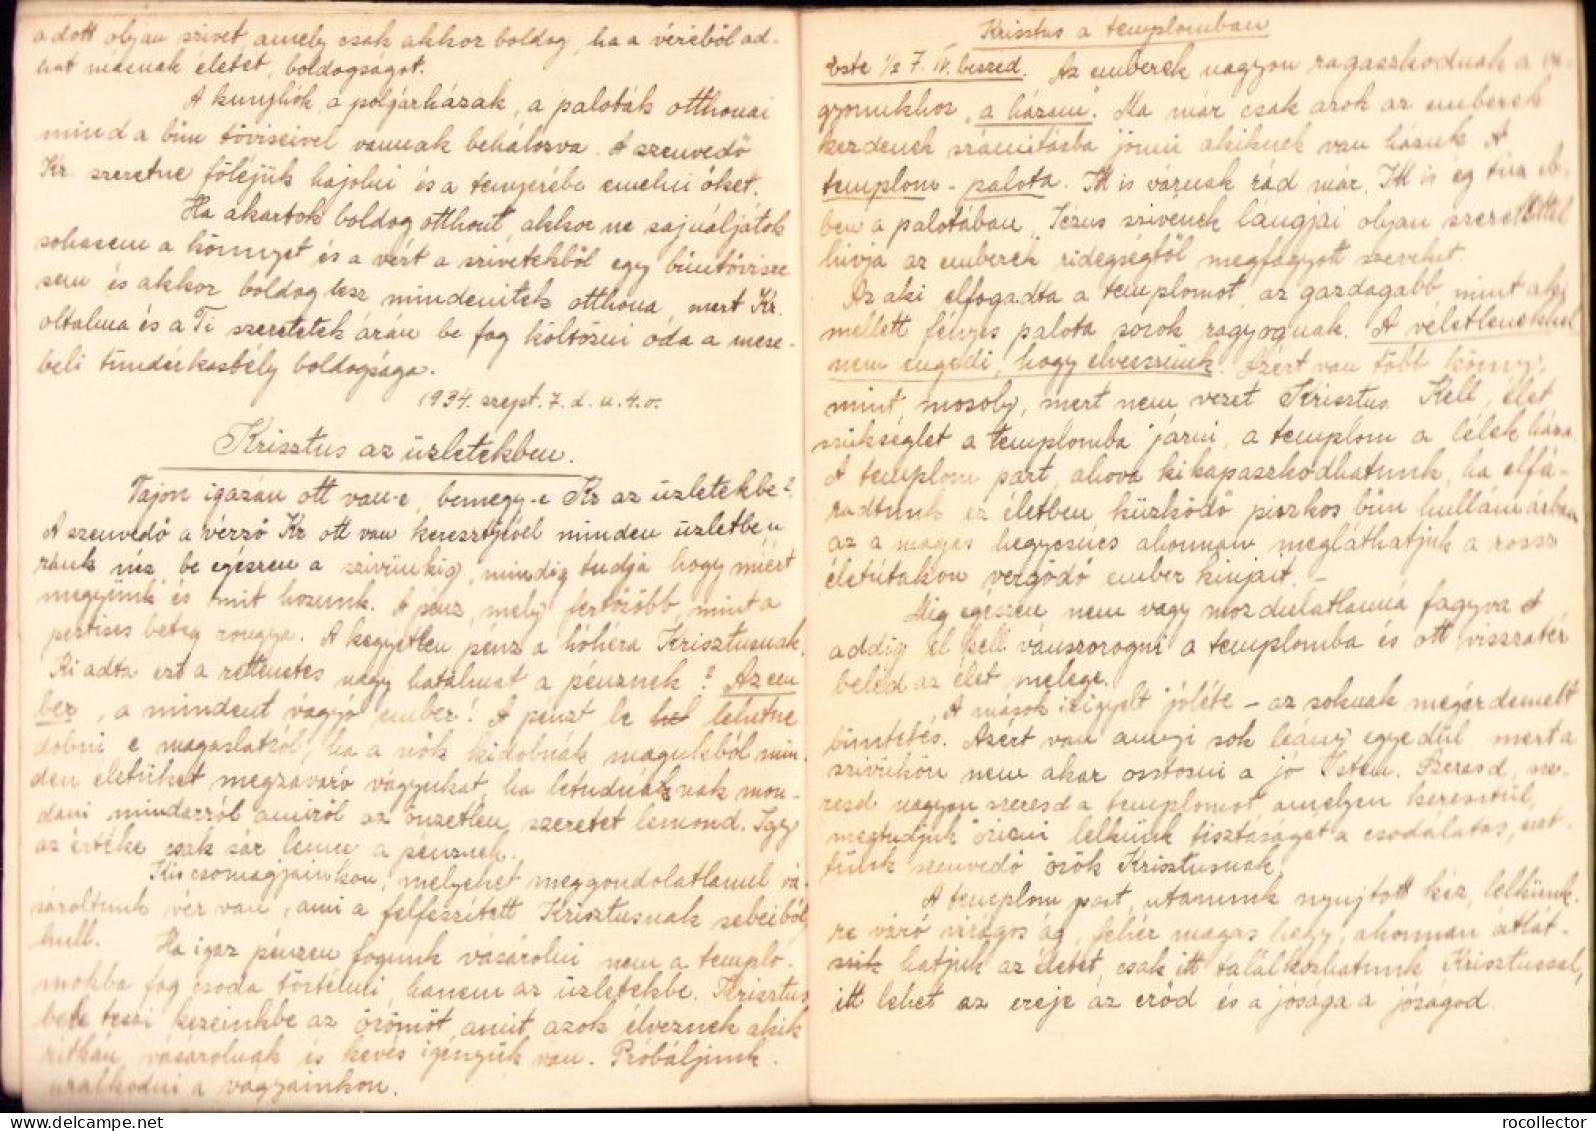 adott olyan szivet, amely csak akkor boldog, ha a véréből ad-
hat másnak életet, boldogságot.
A kunyhók a polgárházak, a paloták otthonai
mind a bün töviseivel vannak behálozva. A szenvedő
Kr. szeretne föléjük hajolni és a tenyerébe emelni őket.
Ha akartok boldog otthont, akkor ne sajnáljátok
sohasem a könnyet és a vért a szivetekből egy büntövisre
sem és akkor boldog lesz mindenitek otthona, mert Kr.
oltalma és a Ti szeretetek árán be fog költözni oda a mese-
beli tündérkastély boldogsága.
1934. szept. 7. d. u. 4. o.
Krisztus az üzletekben.
Vajon igazán ott van-e, bemegy-e Kr az üzletekbe?
A szenvedő a vérző Kr ott van keresztjével minden üzletben
ránk néz be egészen a szivünkig, mindig tudja hogy miért
megyünk és mit hozunk. A pénz, mely fertőzőbb, mint a
pestises beteg rongya. A kegyetlen pénz a hóhéra Krisztusnak.
Ki adta ezt a rettenetes nagy hatalmat a pénznek? Az em
ber, a mindent vágyó ember! A pénzt le lehetne
dobni e magaslatról, ha a nők kidobnák magukból min-
den életüket megzavaró vágyukat, ha le tudnának mon-
dani mindarról amiről az önzetlen szeretet lemond. Igy
az értéke csak sár lenne a pénznek.
Kis csomagjainkon, melyeket meggondolatlanul vá-
sároltunk vér van, ami a felfeszitett Krisztusnak sebeiből
hull.
Ha igaz pénzen fogunk vásárolni nem a templo-
mokba fog csoda történni, hanem az üzletekbe. Krisztus
bele teszi kezeinkbe az örömöt, amit azok élveznek akik
ritkán vásárolnak és kevés igényük van. Próbáljunk
uralkodni a vágyainkon.
Krisztus a templomban
Este 1/2 7. IV. beszéd. Az emberek nagyon ragaszkodnak a va-
gyonukhoz, "a házam". Ma már csak azok az emberek
kezdenek számitásba jönni akiknek van házuk. A
templom - palota. Itt is várnak rád már. Itt is ég tüz eb-
ben a palotában, Jézus szivének lángjai olyan szeretettel
hivja az emberek ridegségtől megfagyott sziveket.
Az aki elfogadta a templomot, az gazdagabb, mint aki
mellett fényes palota sorok ragyognak. A véletleneknek
nem engedi, hogy elvesszünk. Azért van több könny,
mint mosoly, mert nem vezet Krisztus. Kell, élet
szükséglet a templomba járni, a templom a lélek háza
A templom part, ahova kikapaszkodhatunk, ha elfá-
radtunk az életben küzködő piszkos bün hullámaiban
az a magas hegycsúcs ahonnan megláthatjuk a rossz
életútakon vergődő ember kinjait. -
Mig egészen nem vagy mozdulatlanná fagyva
addig el kell vánszorogni a templomba és ott visszatér
beléd az élet melege.
A mások irigyelt jóléte - az soknak megérdemelt
büntetés. Azért van annyi sok leány egyedül mert a
szivükön nem akar osztozni a jó Isten. Szeresd, sze-
resd nagyon szeresd a templomot, amelyen keresztül,
megtudjuk őrizni lelkünk tisztaságát a csodálatos, ért-
tünk szenvedő örök Krisztusnak
A templom part, utánunk nyujtott kéz, lelkünk-
re váró virágos ág, fehér magas hegy, ahonnan átlát-
hatjuk az életet, csak itt találkozhatunk Krisztussal,
itt lehet az ereje az erőd és a jósága a jóságod.
rocollector